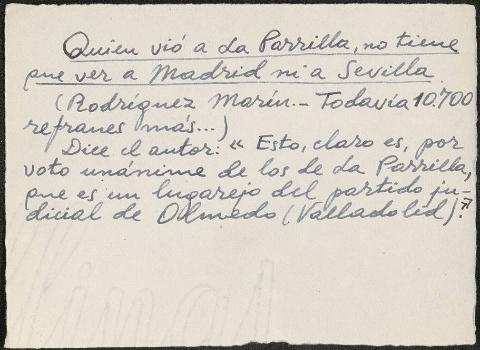 Quien vió a La Parrilla, no tiene
que ver a Madrid ni a Sevilla
(Rodríguez Marín.- Todavía 10.700
refranes más...)
Dice el autor: "Esto, claro es, por
voto unánime de los de La Parrilla,
que es un lugarejo del partido ju-
dicial de Olmedo (Valladolid)."